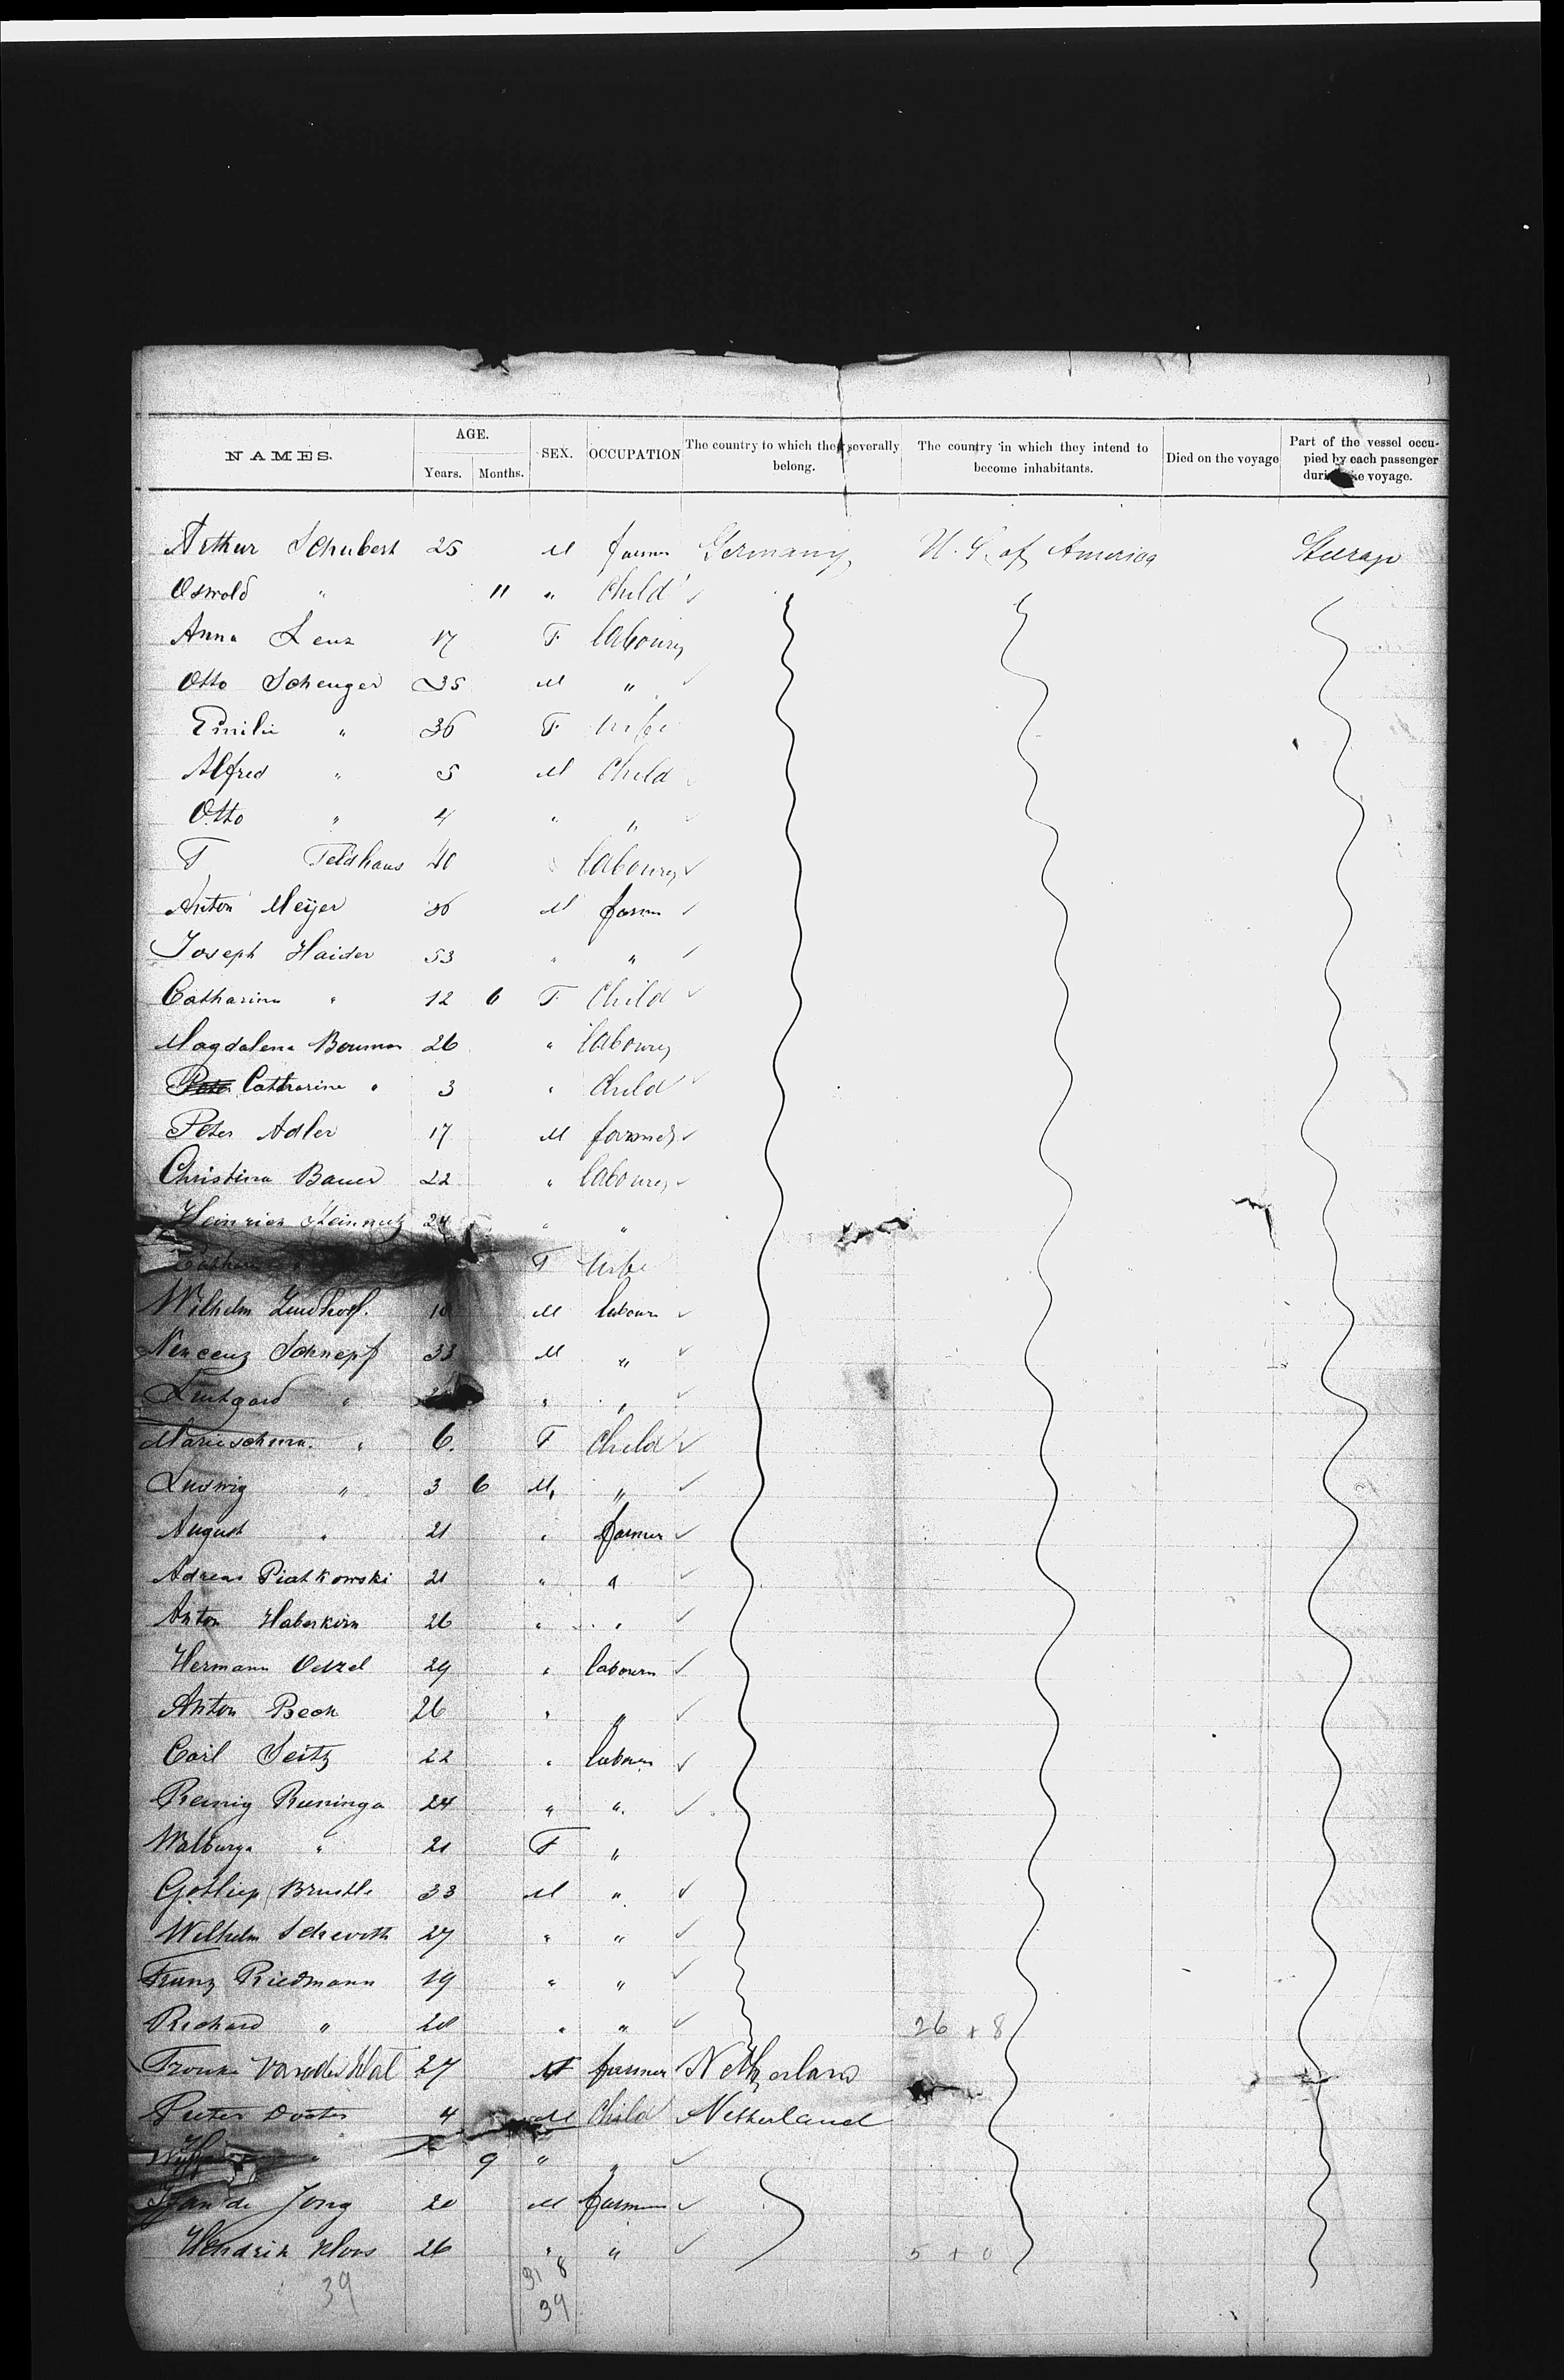 NAMES. AGE. SEX. OCCUPATION The country to which they severally belong. The country in which they intend to become inhabitants. Died on the voyage Part of the vessel occupied by each passenger during the voyage.
Years. Months.
Arthur Schubert 25 M farmer Germany U. S. of America Steerage
Oswold " 11 " Child
Anna Lenz 17 F labourer
Otto Schenger 35 M "
Emilie " 36 F wife
Alfred " 5 M Child
Otto " 4 " "
F Feldhaus 40 labourer
Anton Meijer 36 M farmer
Joseph Haider 53 " "
Catharina " 12 6 F Child
Magdalena Bouman 26 " labourer
Catharine " 3 " Child
Peter Adler 17 M farmer
Christina Bauer 22 " labourer
Heinrich 24 " "
F wife
Wilhelm M labourer
Vencenz Schnepf 33 M "
Leutgard " " "
" 6. F Child
Ludwig " 3 6 M, "
August " 21 " farmer
Adreas Piatkowski 21 " "
Anton Haberkorn 26 " "
Hermann Oetzel 29 " labourer
Anton Beck 26 " "
Carl Seitz 22 " labourer
Remig Runinga 24 " "
Walburga " 21 F "
Gotliep Brustle 33 M "
Wilhelm 27 " "
Franz Riedmann 19 " "
Richard " 20 " " 26 + 8
27 farmer Netherland
Pieter 4 M Child Netherland
" 9 " "
de Jong 20 M farmer
Hendrik Kloos 26 " " 5 + 0
31 8
39 39